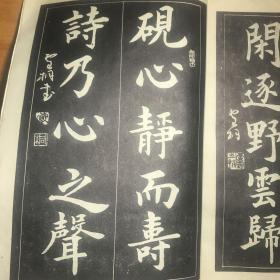 閑逐野雲歸
硯心靜而壽
詩乃心之聲